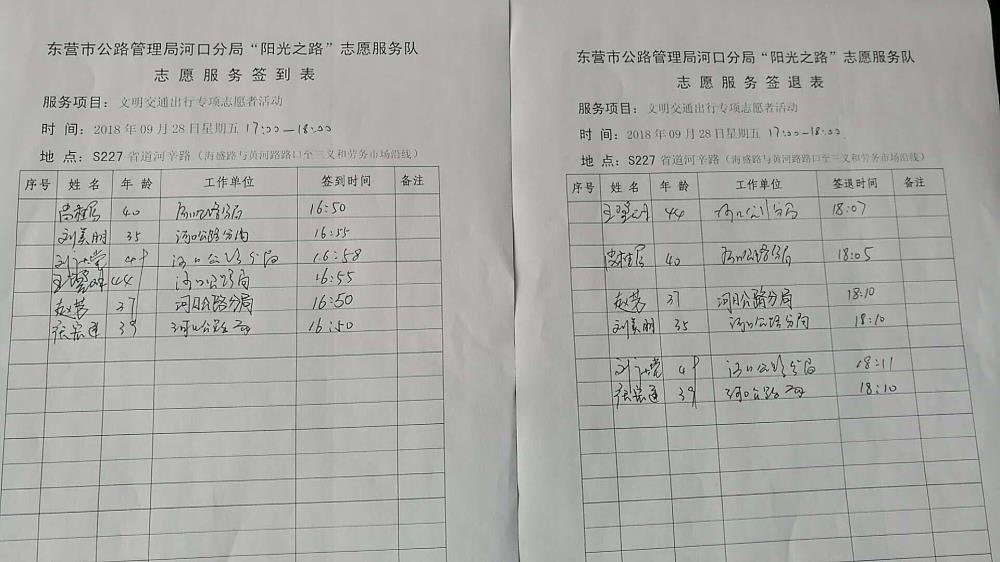 东营市公路管理局河口分局“阳光之路”志愿服务队
志愿服务签到表
服务项目: 文明交通出行专项志愿者活动
时 间: 2018年09月28日星期五 17:00—18:00
地 点: S227省道河辛路（海盛路与黄河路路口至三义和劳务市场沿线）
序号 姓名 年龄 工作单位 签到时间 备注
40 16:50
刘美朋 35 河口公路分局 16:55
河口公路分局 16:58
44 河口公路局 16:55
赵芳 37 河口公路分局 16:50
张宗通 39 河口公路 16:50
东营市公路管理局河口分局“阳光之路”志愿服务队
志愿服务签退表
服务项目: 文明交通出行专项志愿者活动
时 间: 2018年09月28日星期五 17:00—18:00
地 点: S227省道河辛路（海盛路与黄河路路口至三义和劳务市场沿线）
序号 姓名 年龄 工作单位 签退时间 备注
44 河口分局 18:07
40 18:05
赵芳 37 河口公路分局 18:10
刘美朋 35 河口公路分局 18:10
河口公路分局 18:11
张宗通 39 河口公路 18:10